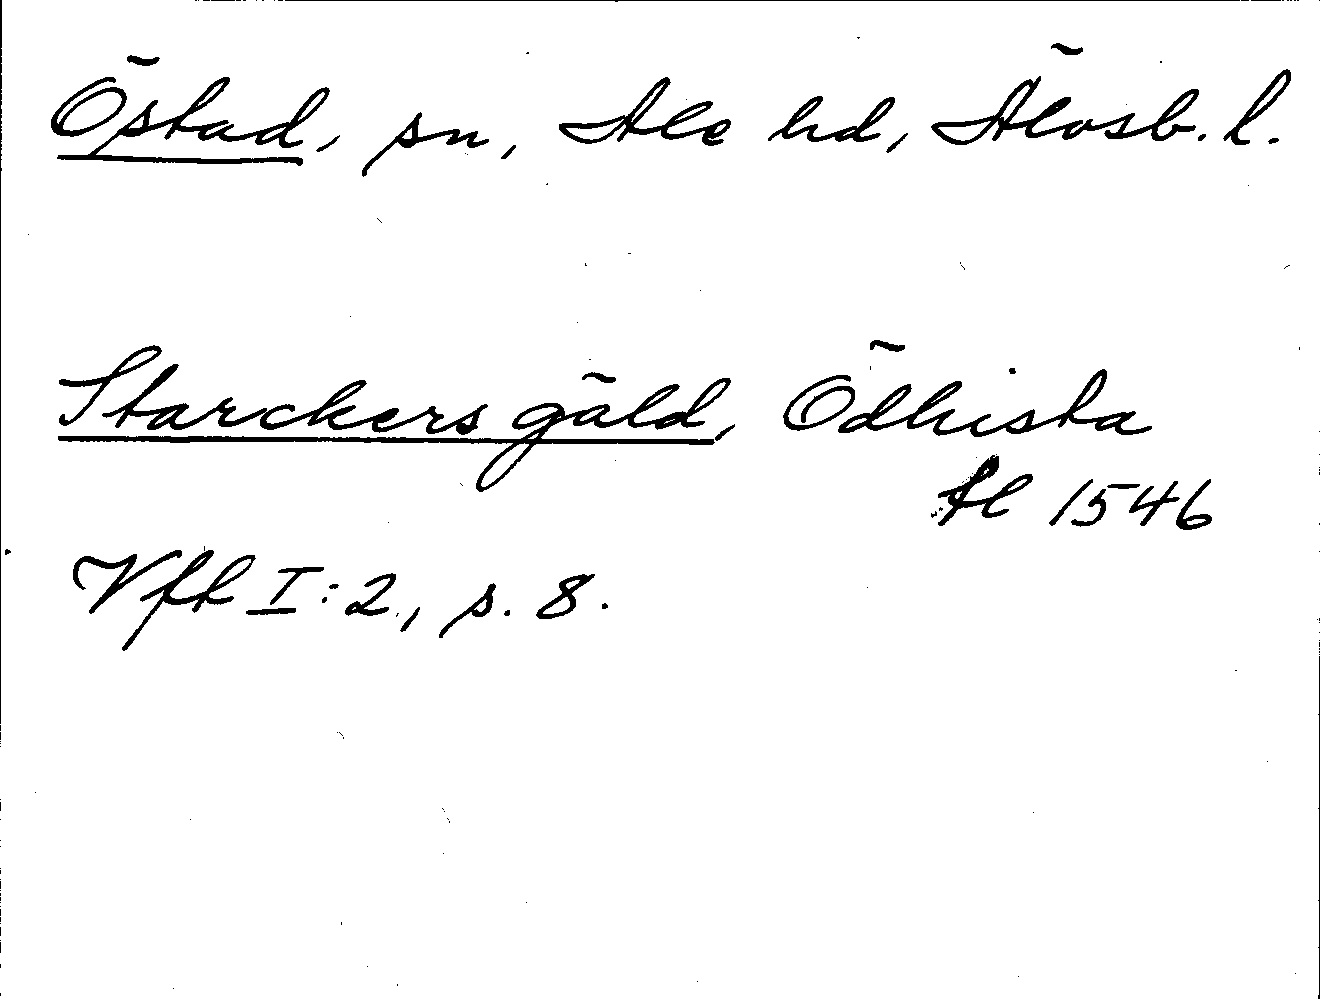 Östad, sn, Ale hd, Älvsb. l.
Starckers gäld, Ödhista
Äl 1546
Vfk I:2, s. 8.